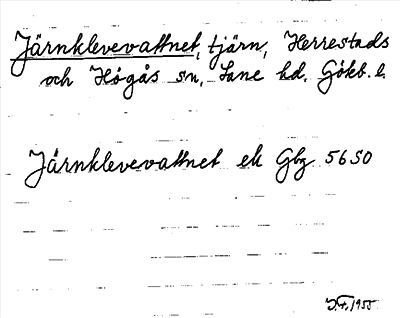 Järnklevevattnet, tjärn, Herrestads
och Högås sn, Lane hd. Gökb. l.
Järnklevevattnet ek Gbg 56 SO
J.F. 1955